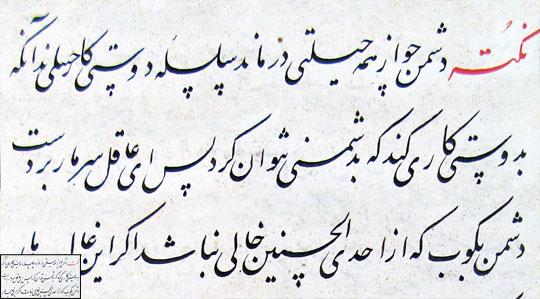 نکته دشمن چو از همه حیلتی درماند سلسله دوستی آنگه
بدوستی کاری کند که بدشمنی نتوان کرد پس ای عاقل سر مار بر دست
دشمن بکوب که از احدی الحسنین خالی نباشد اگر این